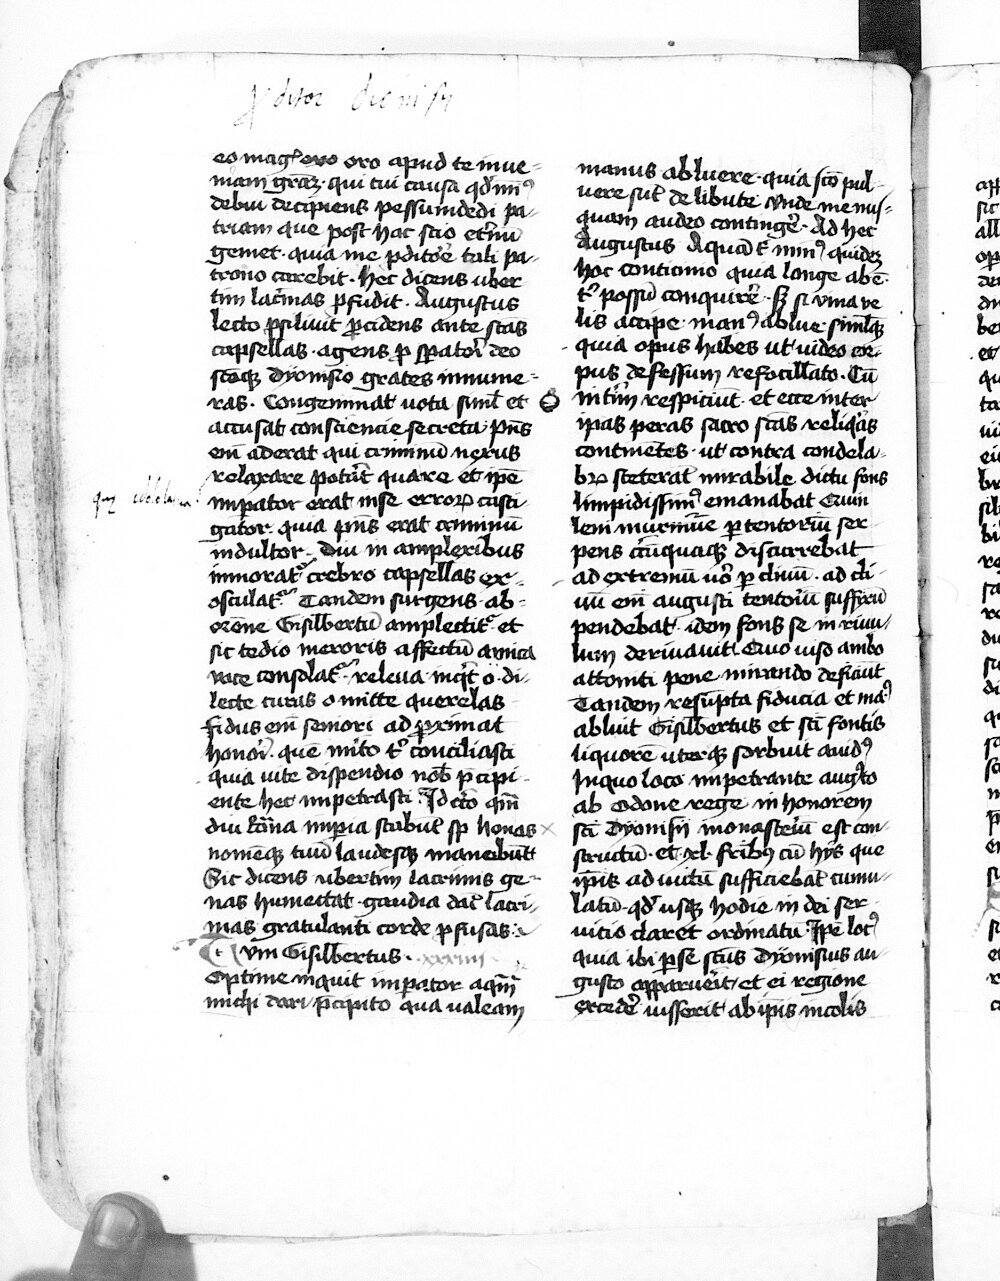 eo mag̅ exo oro apud te inue-
niam gr̅az qui tui causa qd̅ miꝰ
debui decipiens pessumdedi pa-
triam que post hac scio et̅nu̅
gemet quia me p̲dito̅e tali pa-
trono carebit. Hec dicens uber
tim lac̅mas p̲fudit. Augustus
lecto p̲siliuit p̲cidens ante sc̅as
capsellas agens
sc̅oq̲ dyonisio grates innume-
ras. Congeminat uota simĺ et
accusat consciencie secreta p̅ns
em̅ aderat qui criminu̅ nexus
relaxare potu̅t quare et ip̅e
imp̲ator erat in se error̲ casti
gator. quia p̅ns erat criminu̅
indultor. Diu in amplexibus
inmorat᷑ crebro capsellas ex-
osculat᷑ Tandem surgens ab-
Gisilbertu̅ amplectit᷑ et
sic tedio meroris affectu̅ amica
uoce consolat᷑ releua inq̅t o di-
lecte curas omitte querelas
fidus em̅ seniori ad p̲ximat
honor̅ que
quia uite dispendio nob̅ p̅cipi-
ente hec impetrasti. Id
diu imp̲ia stabuńt sp̅ honos
nomeq̲ tuu̅ laudesq̲ manebu̅t
Sic dicens ubertim lacrimis ge-
nas humectat gaudia dat̅ lacri-
mas gratulanti corde p̲fusas.
Tum Gisilbertus. xxxiiii
Optime inquit imp̲ator aqm̅
michi dari p̅cipito qua ualeam
manus abluere quia sc̅o pul-
uere su̅t delibute Unde me nus-
quam audeo continge̅. Ad hec
Augustus Aqua̅ t᷑ minꝰ quidez
hoc conticinio quia longe abe̅
t᷑ possu̅ conquire̅. S̅z si uina ve
lis accipe manꝰ ablue simĺq̲
quia opus habes ut uideo cor-
pus defessum refocillato. Cu̅
int̅im respiciu̅t et ecce inter
ipsas peras sacro sc̅as reliq̅as
continentes ut contra condela-
br̲ steterat mirabile dictu fons
limpidissimꝰ emanabat Cuius
murmure p̲ tentoriu̅ ser
pens discurrebat
ad extremu̅ uo̅ p̲ cliuu̅. ad cli-
uu̅ em̅ augusti tentoriu̅ suffixu̅
pendebat idem fons se in riuu-
lum deriuauit. Quo uiso ambo
attoniti pene mirando deficiu̅t
Tandem resu̅pta fiducia et maꝰ
abluit Gisilbertus et sc̅i fontis
liquore̅ uterq̲ sorbuit auidꝰ
In quo loco impetrante augt̅o
ab Odone rege in honorem
sc̅i Dyonisii monasteriu̅ est con-
structu̅. et xl. fr̅ibꝰ cu̅ hijs que
ip̅is ad uictu̅ sufficiebat cumu-
latu̅ qd̅ usq̲ hodie in dei ser
uitio claret ordinatu̅. Ip̅e locꝰ
quia ibi p̲ se sc̅us Dyonisius au-
gusto apparuerit et ei regione
excede̅ iusserit ab ip̅is incolis